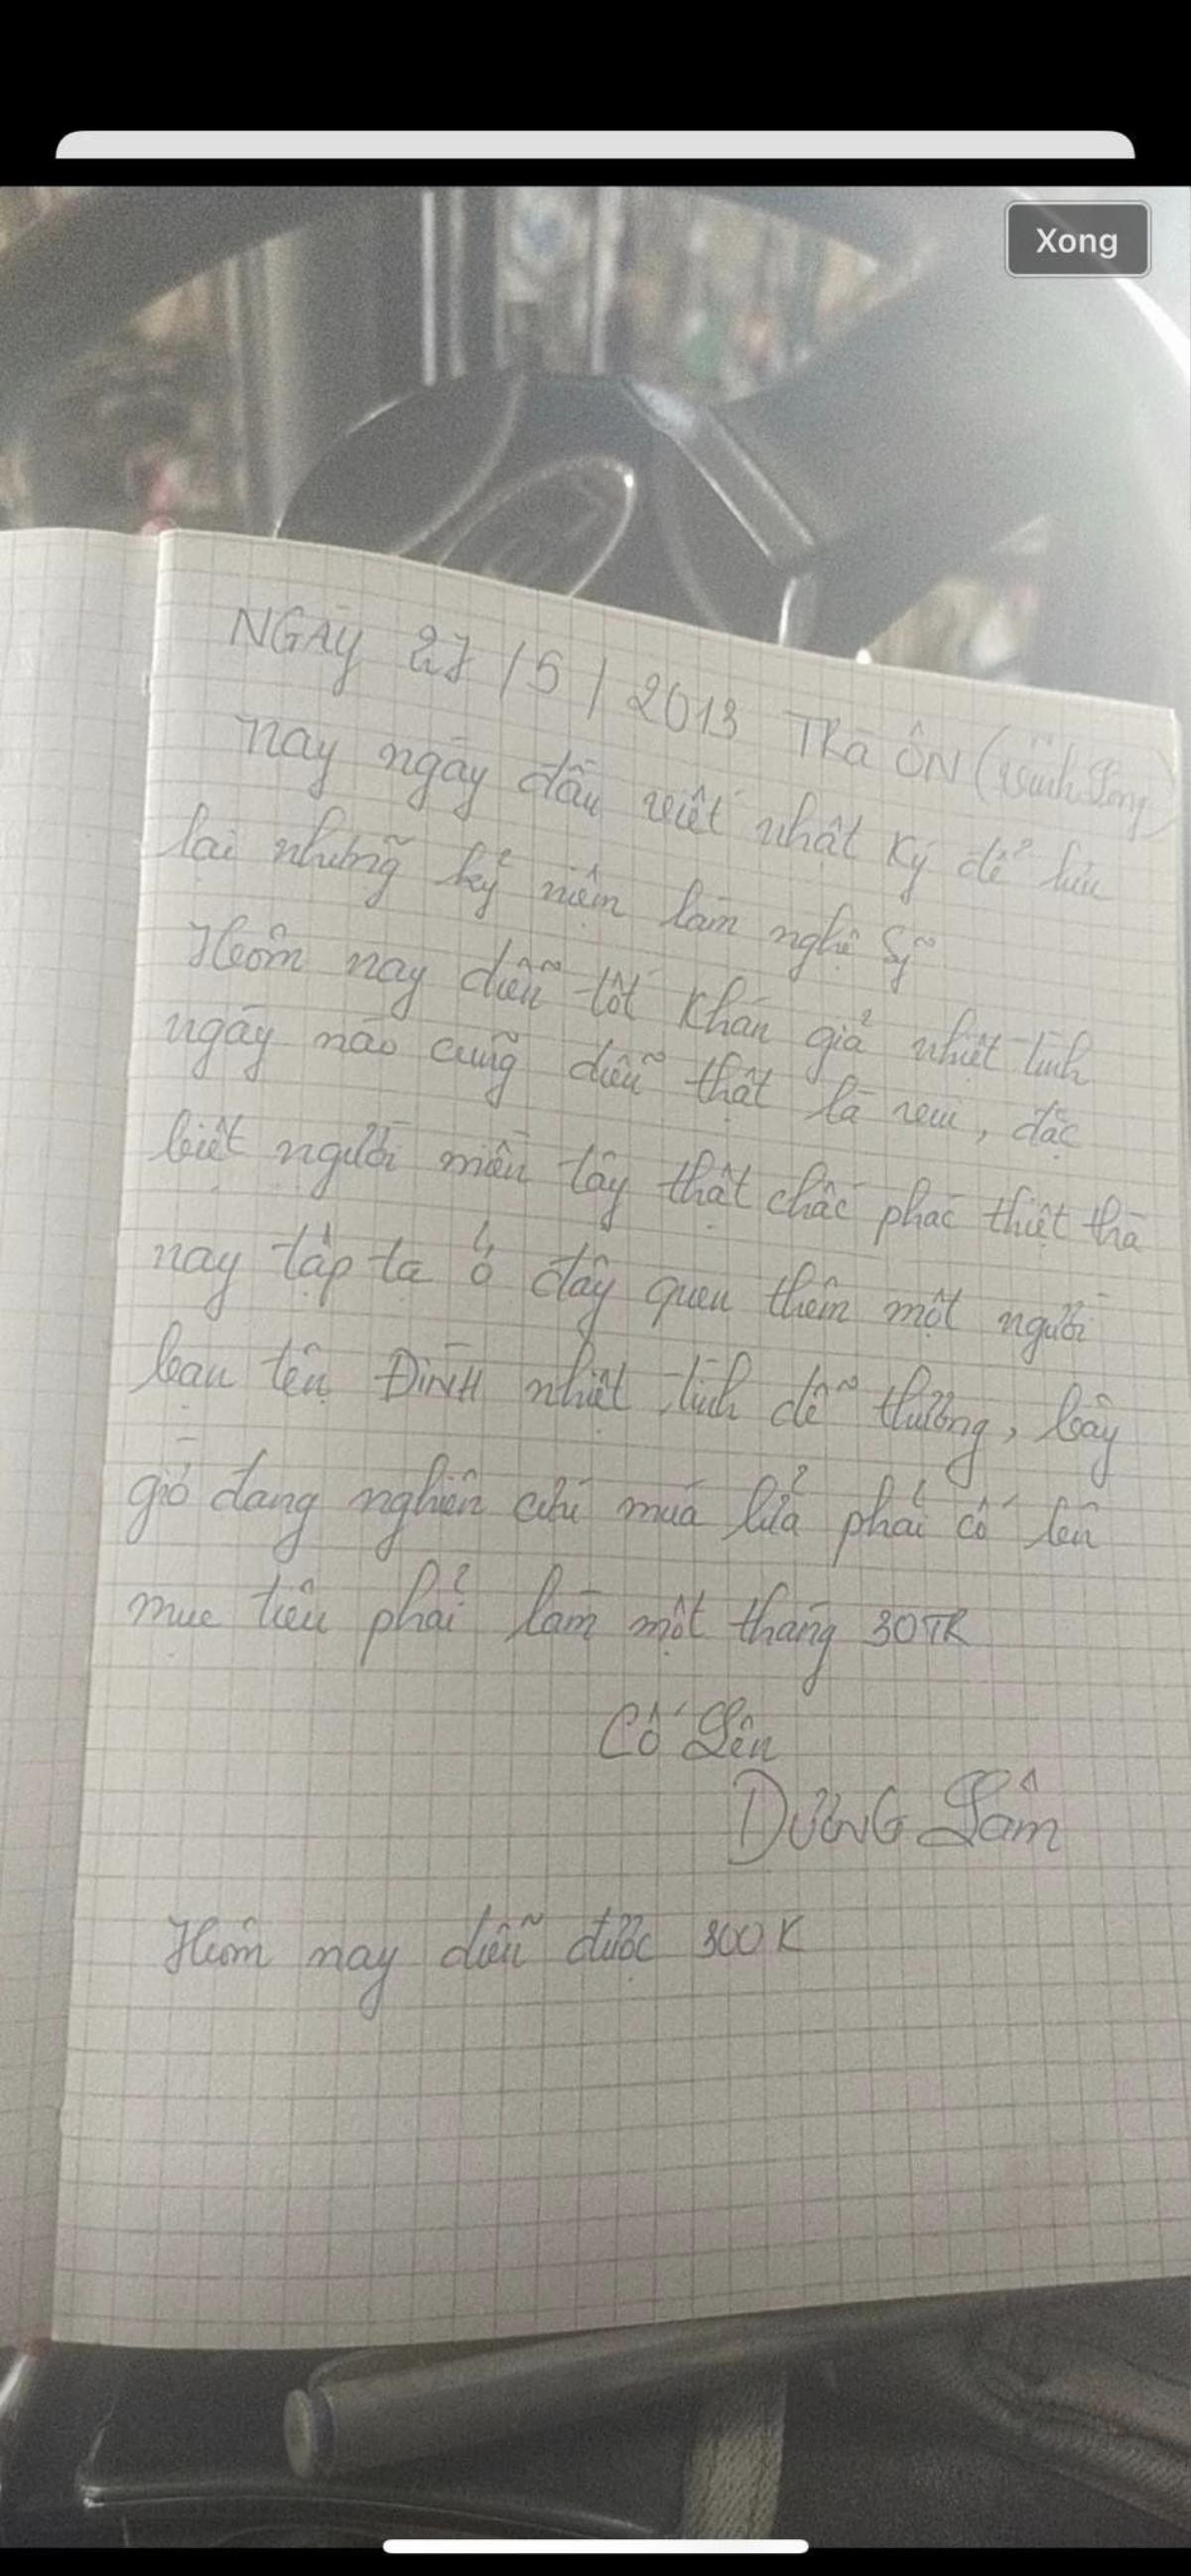 Xong
NGÀY 27/5/2013 TRÀ ÔN (Vĩnh Long)
Nay ngày đầu viết nhật ký để lưu
lại những kỷ niệm làm nghệ sỹ
Hôm nay diễn tốt khán giả nhiệt tình
ngày nào cũng diễn thật là vui, đặc
biệt người miền tây thật chấc phác thiệt thà
nay tấp tạ ở đây quen thêm một người
bạn tên ĐÌNH nhiệt tình dễ thương, bây
giờ đang nghiên cứu múa lửa phải cố lên
mục tiêu phải làm một tháng 30TR
Cố Lên
DƯƠNG Lâm
Hôm nay diễn được 300K